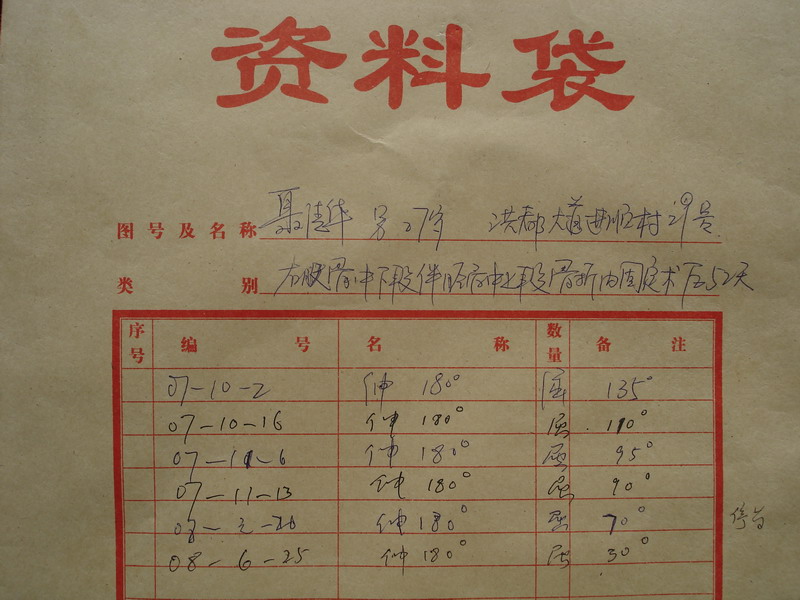 资料袋
图号及名称 聂建华 男 27岁 洪都大道进顺村29号
类别 右股骨中下段伴胫骨中上段骨折内固定术后52天
序号 编号 名称 数量 备注
07-10-2 伸 180° 屈 135°
07-10-16 伸 180° 屈 110°
07-11-6 伸 180° 屈 95°
07-11-13 伸 180° 屈 90°
08-2-26 伸 180° 屈 70°
08-6-25 伸 180° 屈 30°